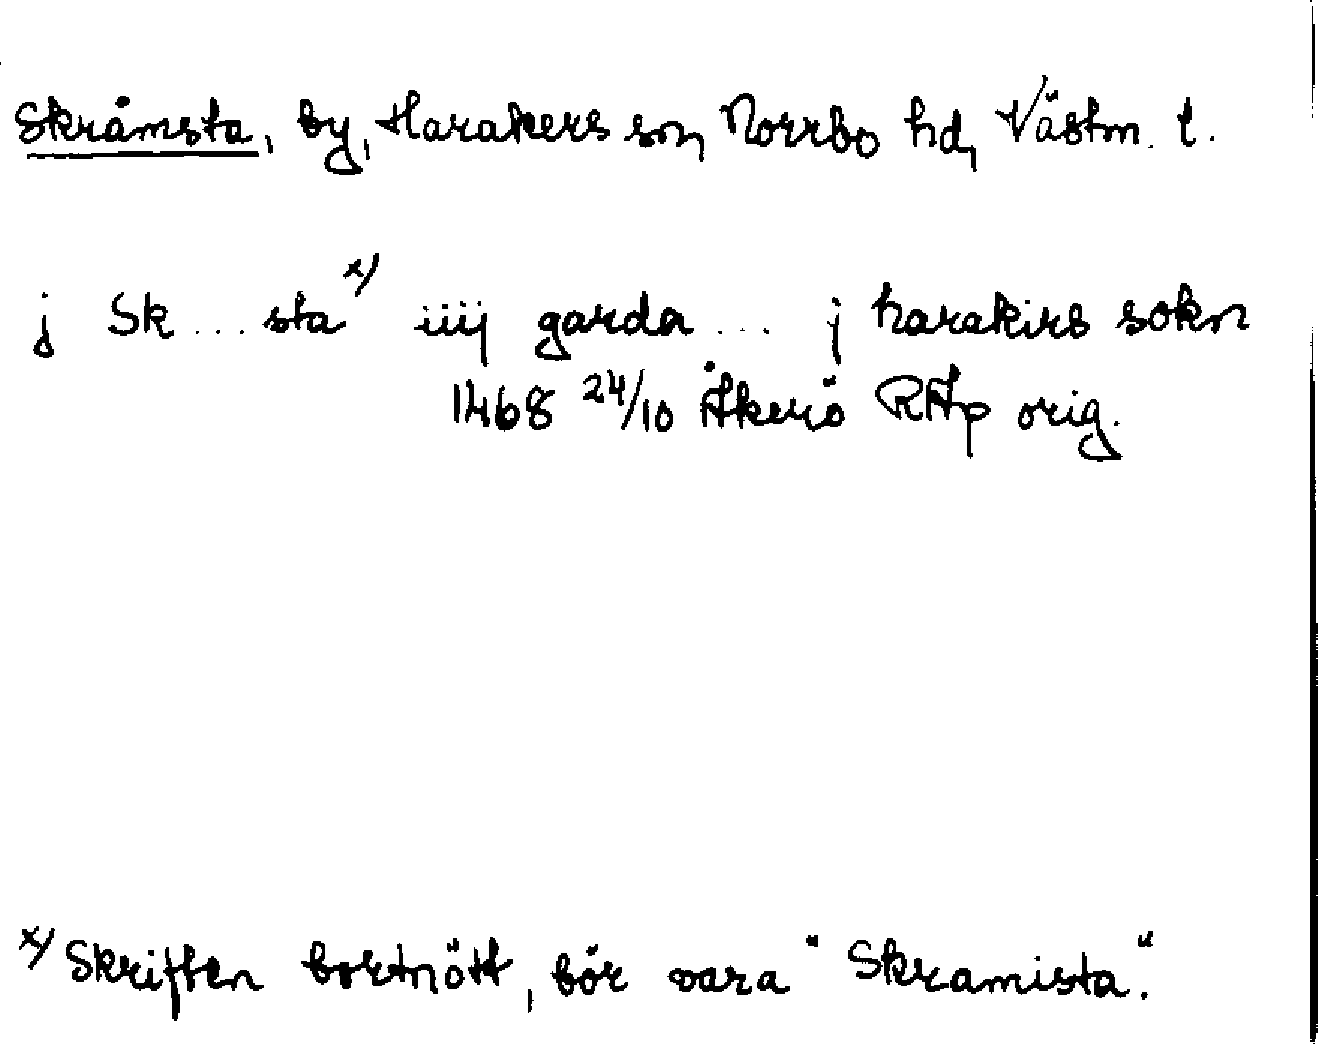 Skråmsta, by, Harakers sn, Norrbo hd, Västm. l.
j Sk...sta x) iiij garda ... j harakirs sokn
1468 24/10 Åkerö RAp orig.
x) Skriften bortnött, bör vara "Skramista".